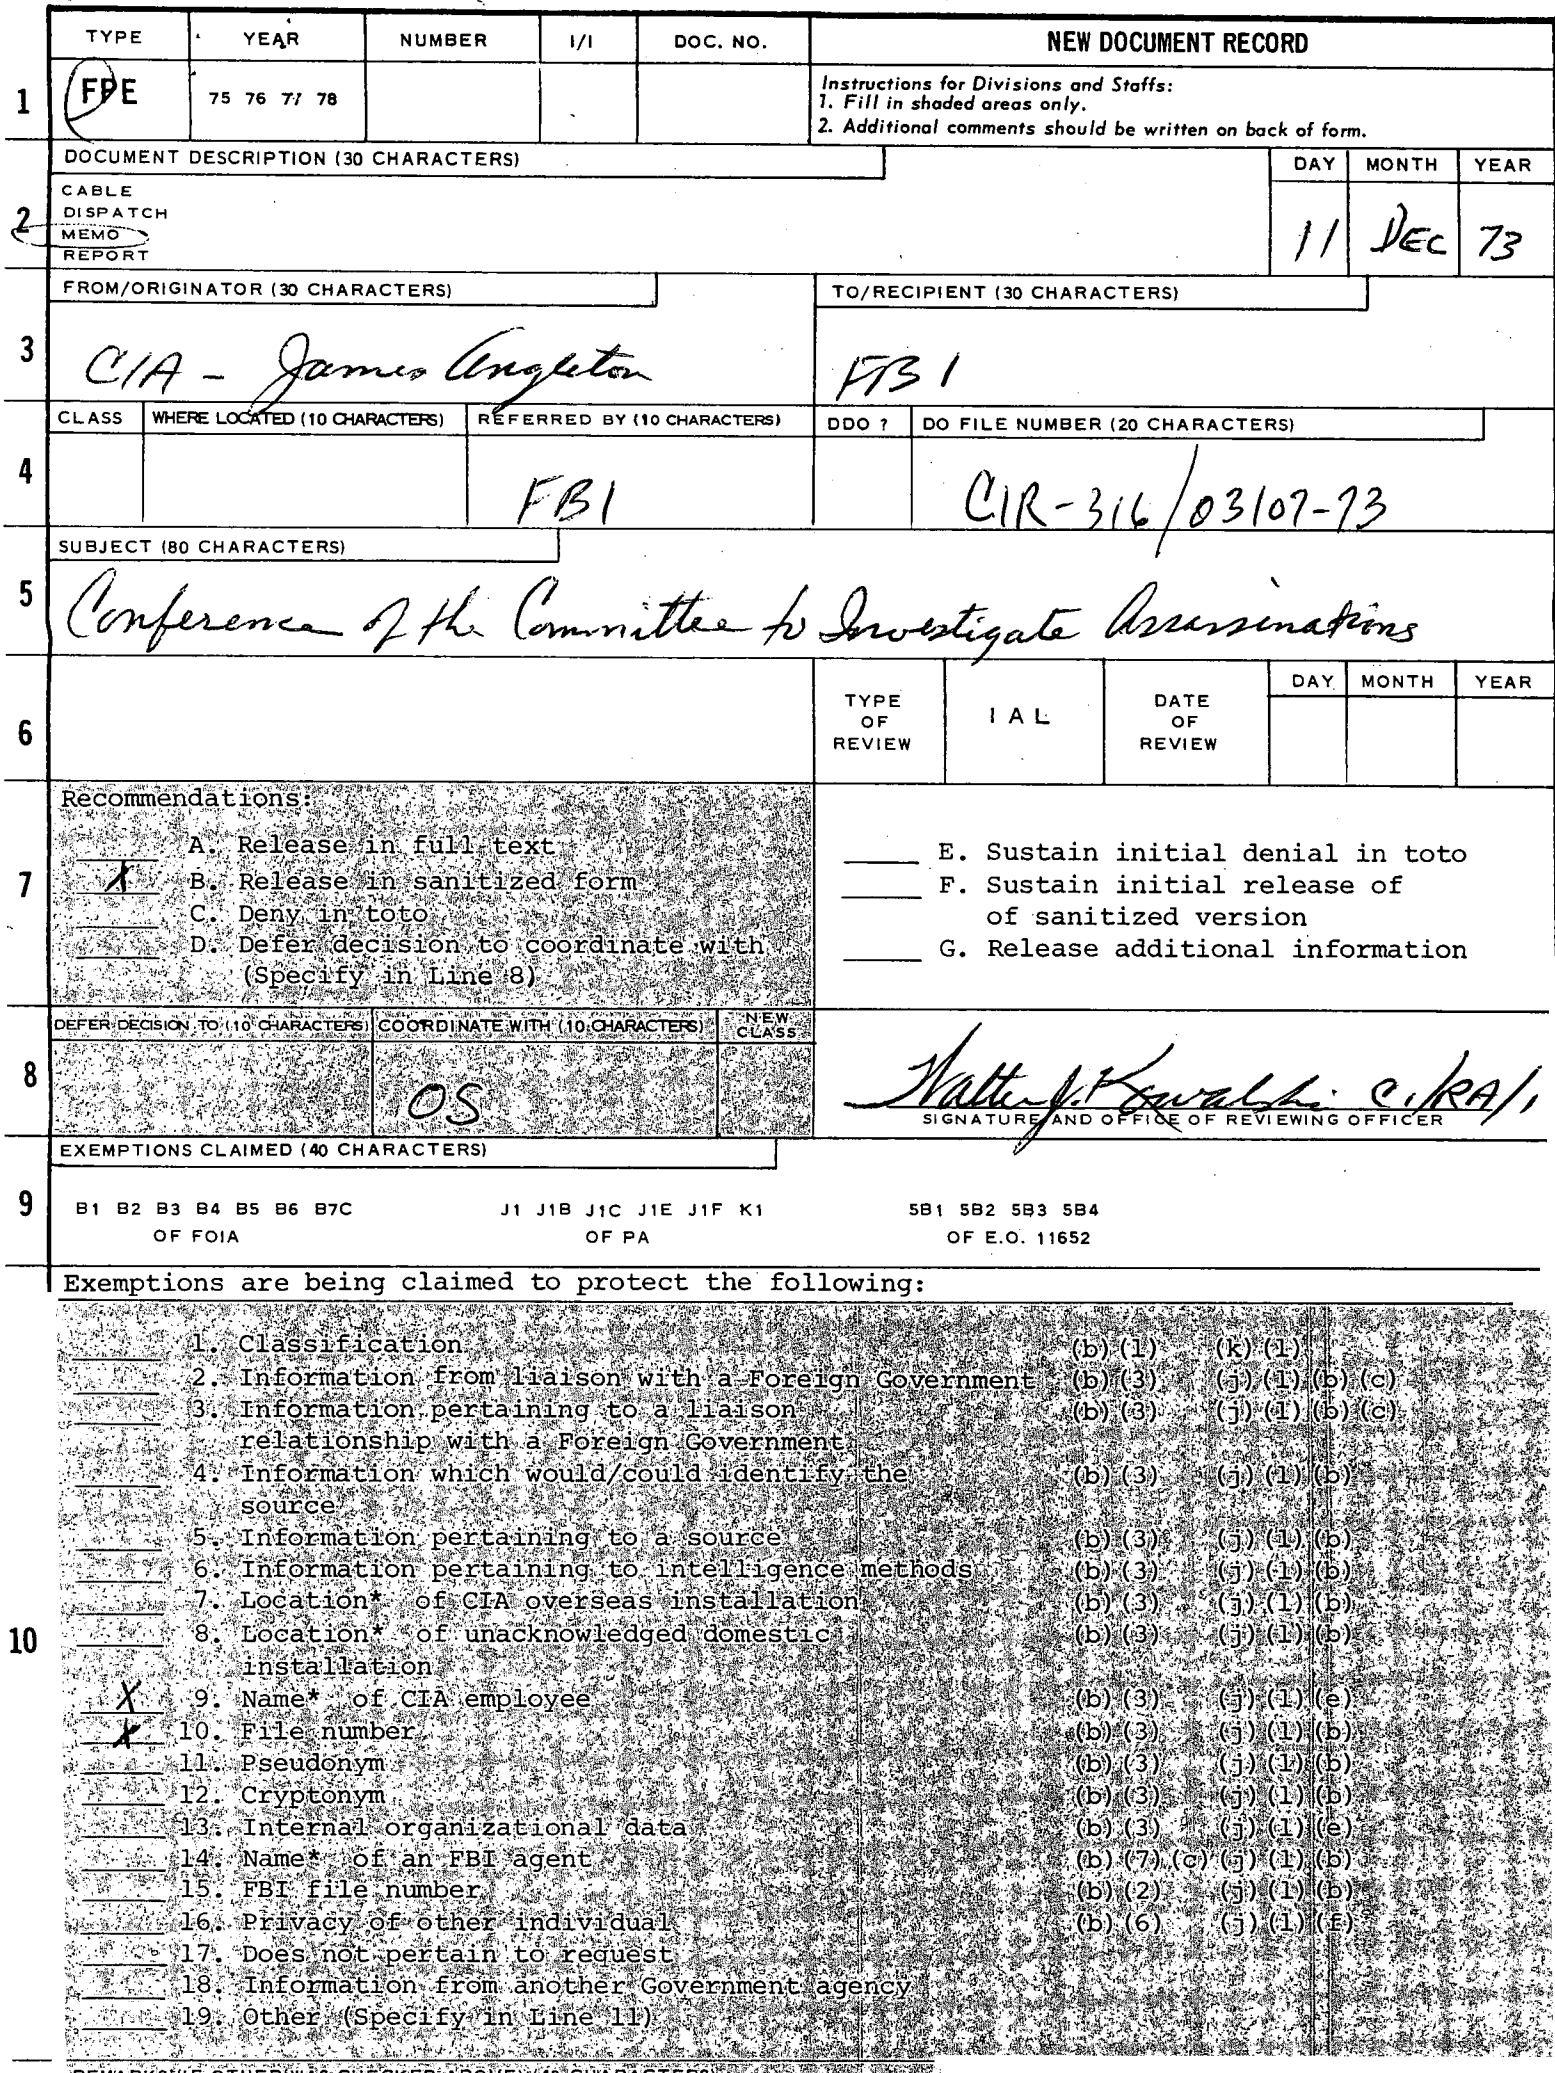 TYPE YEAR NUMBER I/I DOC. NO. NEW DOCUMENT RECORD
1 FPE 75 76 77 78
Instructions for Divisions and Staffs:
1. Fill in shaded areas only.
2. Additional comments should be written on back of form.
DOCUMENT DESCRIPTION (30 CHARACTERS) DAY MONTH YEAR
CABLE
DISPATCH
2 MEMO 11 DEC 73
REPORT
FROM/ORIGINATOR (30 CHARACTERS) TO/RECIPIENT (30 CHARACTERS)
3 CIA - James Angleton FBI
CLASS WHERE LOCATED (10 CHARACTERS) REFERRED BY (10 CHARACTERS) DDO ? DO FILE NUMBER (20 CHARACTERS)
4 FBI CIR-316/03107-73
SUBJECT (80 CHARACTERS)
5 Conference of the Committee to Investigate Assassinations
6 TYPE OF REVIEW I A L DATE OF REVIEW DAY MONTH YEAR
Recommendations:
7
A. Release in full text
X B. Release in sanitized form
C. Deny in toto
D. Defer decision to coordinate with
(Specify in Line 8)
E. Sustain initial denial in toto
F. Sustain initial release of
of sanitized version
G. Release additional information
DEFER DECISION TO (10 CHARACTERS) COORDINATE WITH (10 CHARACTERS) NEW CLASS
8 OS Walter J. Kowalski C./RA/1
SIGNATURE AND OFFICE OF REVIEWING OFFICER
EXEMPTIONS CLAIMED (40 CHARACTERS)
9 B1 B2 B3 B4 B5 B6 B7C J1 J1B J1C J1E J1F K1 5B1 5B2 5B3 5B4
OF FOIA OF PA OF E.O. 11652
Exemptions are being claimed to protect the following:
10
1. Classification (b)(1) (k)(1)
2. Information from liaison with a Foreign Government (b)(3) (j)(1)(b)(c)
3. Information pertaining to a liaison (b)(3) (j)(1)(b)(c)
relationship with a Foreign Government
4. Information which would/could identify the (b)(3) (j)(1)(b)
source
5. Information pertaining to a source (b)(3) (j)(1)(b)
6. Information pertaining to intelligence methods (b)(3) (j)(1)(b)
7. Location* of CIA overseas installation (b)(3) (j)(1)(b)
8. Location* of unacknowledged domestic (b)(3) (j)(1)(b)
installation
X 9. Name* of CIA employee (b)(3) (j)(1)(e)
X 10. File number (b)(3) (j)(1)(b)
11. Pseudonym (b)(3) (j)(1)(b)
12. Cryptonym (b)(3) (j)(1)(b)
13. Internal organizational data (b)(3) (j)(1)(e)
14. Name* of an FBI agent (b)(7)(c) (j)(1)(b)
15. FBI file number (b)(2) (j)(1)(b)
16. Privacy of other individual (b)(6) (j)(1)(f)
17. Does not pertain to request
18. Information from another Government agency
19. Other (Specify in Line 11)